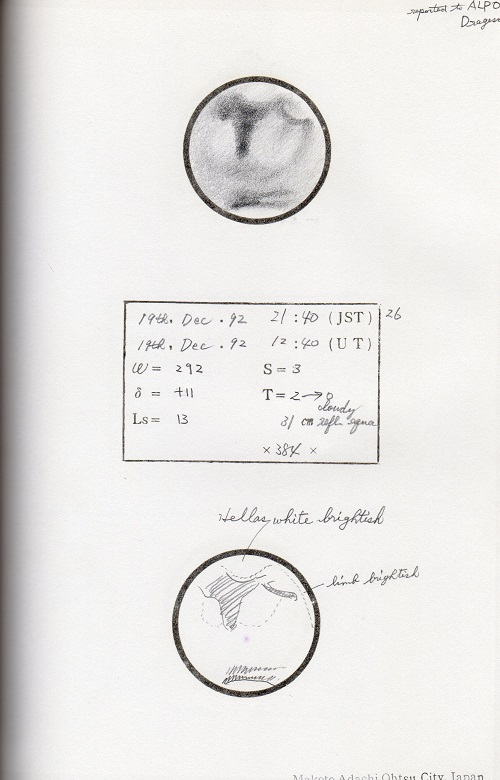 reported to ALPO
19th, Dec. 92 21:40 (JST) 26
19th, Dec. 92 12:40 (UT)
ω = 292 S = 3
δ = +11 T = 2→0
cloudy
Ls = 13 31 cm refl.
×384 ×
Hellas white brightish
limb brightish
Makoto Adachi Ohtsu City, Japan